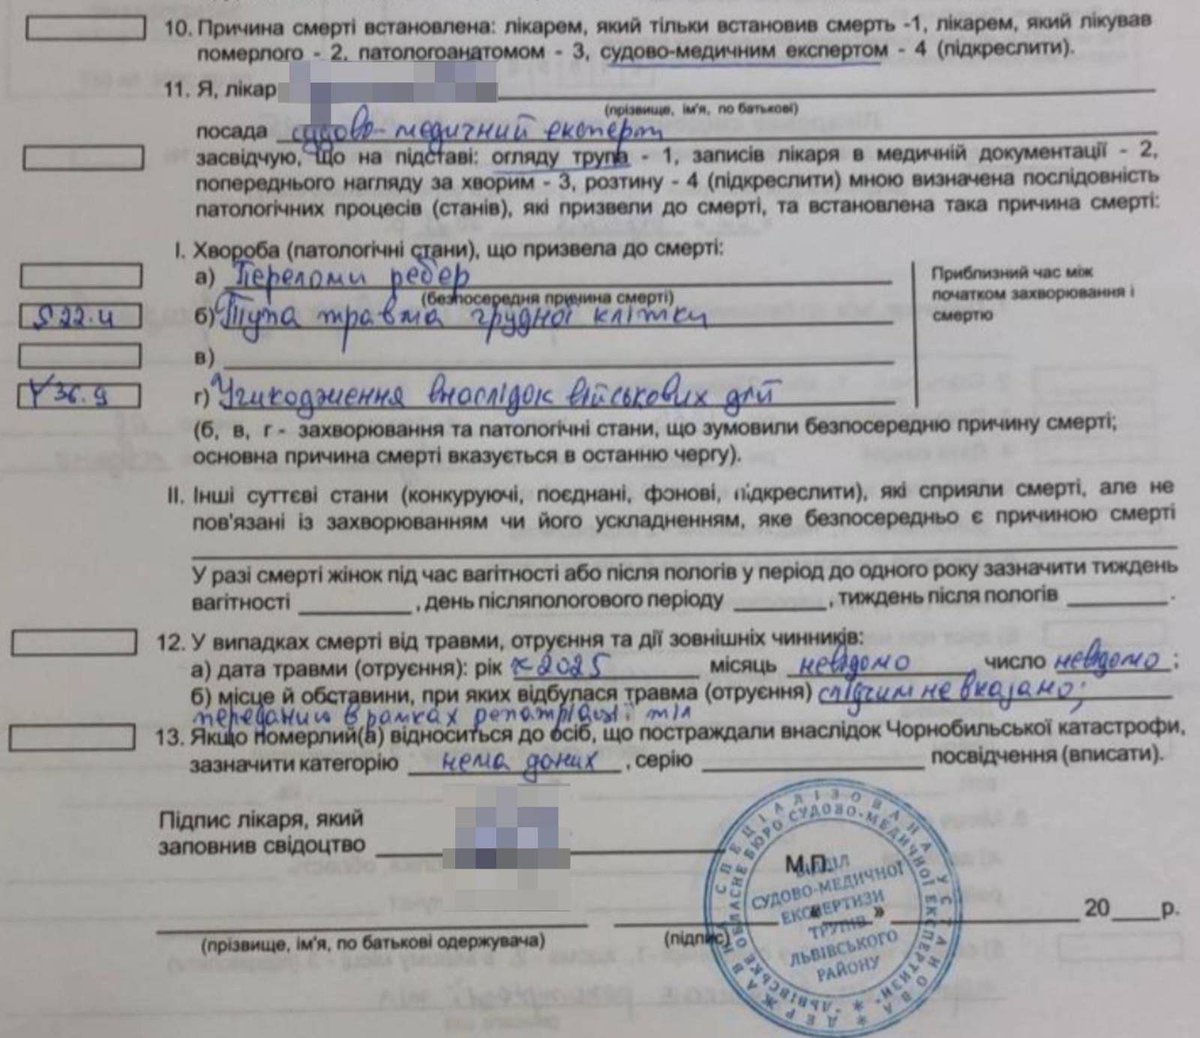 10. Причина смерті встановлена: лікарем, який тільки встановив смерть -1, лікарем, який лікував
померлого - 2, патологоанатомом - 3, судово-медичним експертом - 4 (підкреслити).
11. Я, лікар
(прізвище, ім'я, по батькові)
посада судово-медичний експерт
засвідчую, що на підставі: огляду трупа - 1, записів лікаря в медичній документації - 2,
попереднього нагляду за хворим - 3, розтину - 4 (підкреслити) мною визначена послідовність
патологічних процесів (станів), які призвели до смерті, та встановлена така причина смерті:
І. Хвороба (патологічні стани), що призвела до смерті:
а) Переломи ребер
(безпосередня причина смерті)
S 22.4 б) Тупа травма грудної клітки
в)
Y 36.9 г) Ушкодження внаслідок військових дій
Приблизний час між
початком захворювання і
смертю
(б, в, г - захворювання та патологічні стани, що зумовили безпосередню причину смерті;
основна причина смерті вказується в останню чергу).
ІІ. Інші суттєві стани (конкуруючі, поєднані, фонові, підкреслити), які сприяли смерті, але не
пов'язані із захворюванням чи його ускладненням, яке безпосередньо є причиною смерті
У разі смерті жінок під час вагітності або після пологів у період до одного року зазначити тиждень
вагітності , день післяпологового періоду , тиждень після пологів .
12. У випадках смерті від травми, отруєння та дії зовнішніх чинників:
а) дата травми (отруєння): рік 2025 місяць невідомо число невідомо ;
б) місце й обставини, при яких відбулася травма (отруєння) слідчим не вказано;
переданий в рамках репатріації тіл
13. Якщо померлий(а) відноситься до осіб, що постраждали внаслідок Чорнобильської катастрофи,
зазначити категорію нема даних , серію посвідчення (вписати).
Підпис лікаря, який
заповнив свідоцтво
М.П.
« » 20 р.
(прізвище, ім'я, по батькові одержувача) (підпис)
ДЕРЖАВНА СПЕЦІАЛІЗОВАНА УСТАНОВА
"ЛЬВІВСЬКЕ ОБЛАСНЕ БЮРО СУДОВО-МЕДИЧНОЇ ЕКСПЕРТИЗИ"
ВІДДІЛ
СУДОВО-МЕДИЧНОЇ
ЕКСПЕРТИЗИ
ТРУПІВ
ЛЬВІВСЬКОГО
РАЙОНУ